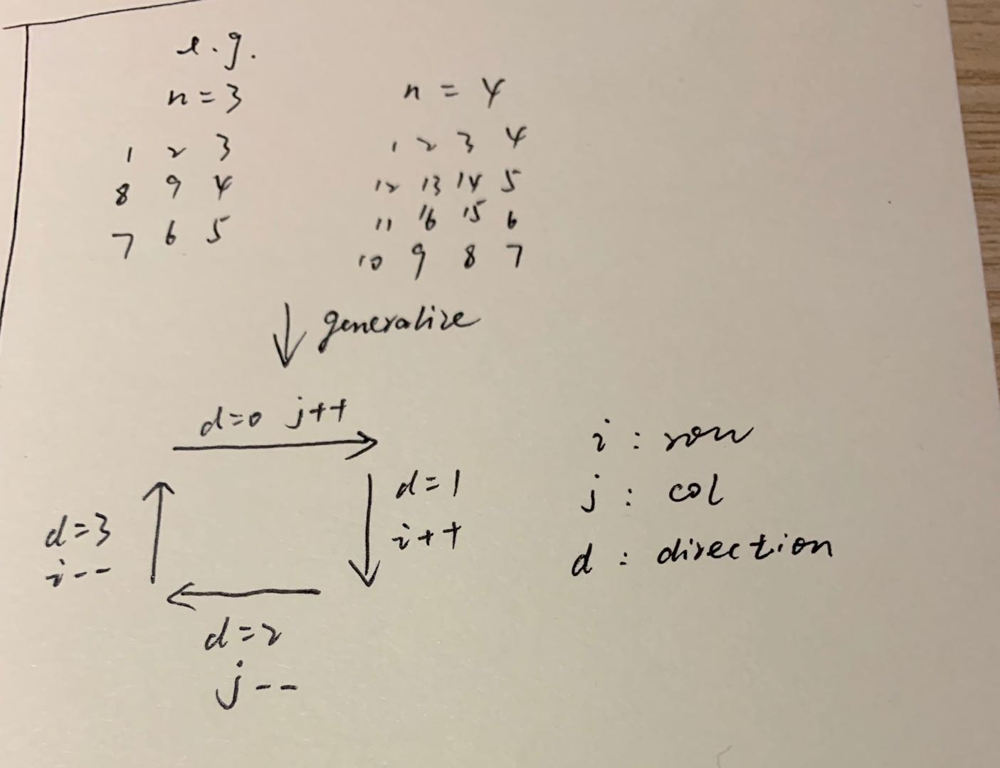 e.g.
n = 3
1 2 3
8 9 4
7 6 5
n = 4
1 2 3 4
12 13 14 5
11 16 15 6
10 9 8 7
generalize
d=0 j++
d=1
i++
d=2
j--
d=3
i--
i : row
j : col
d : direction